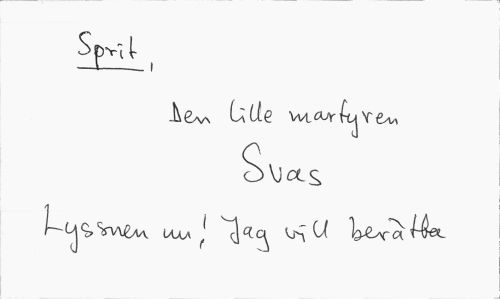 Sprit,
Den lille martyren
Svas
Lyssnen nu! Jag vill berätta